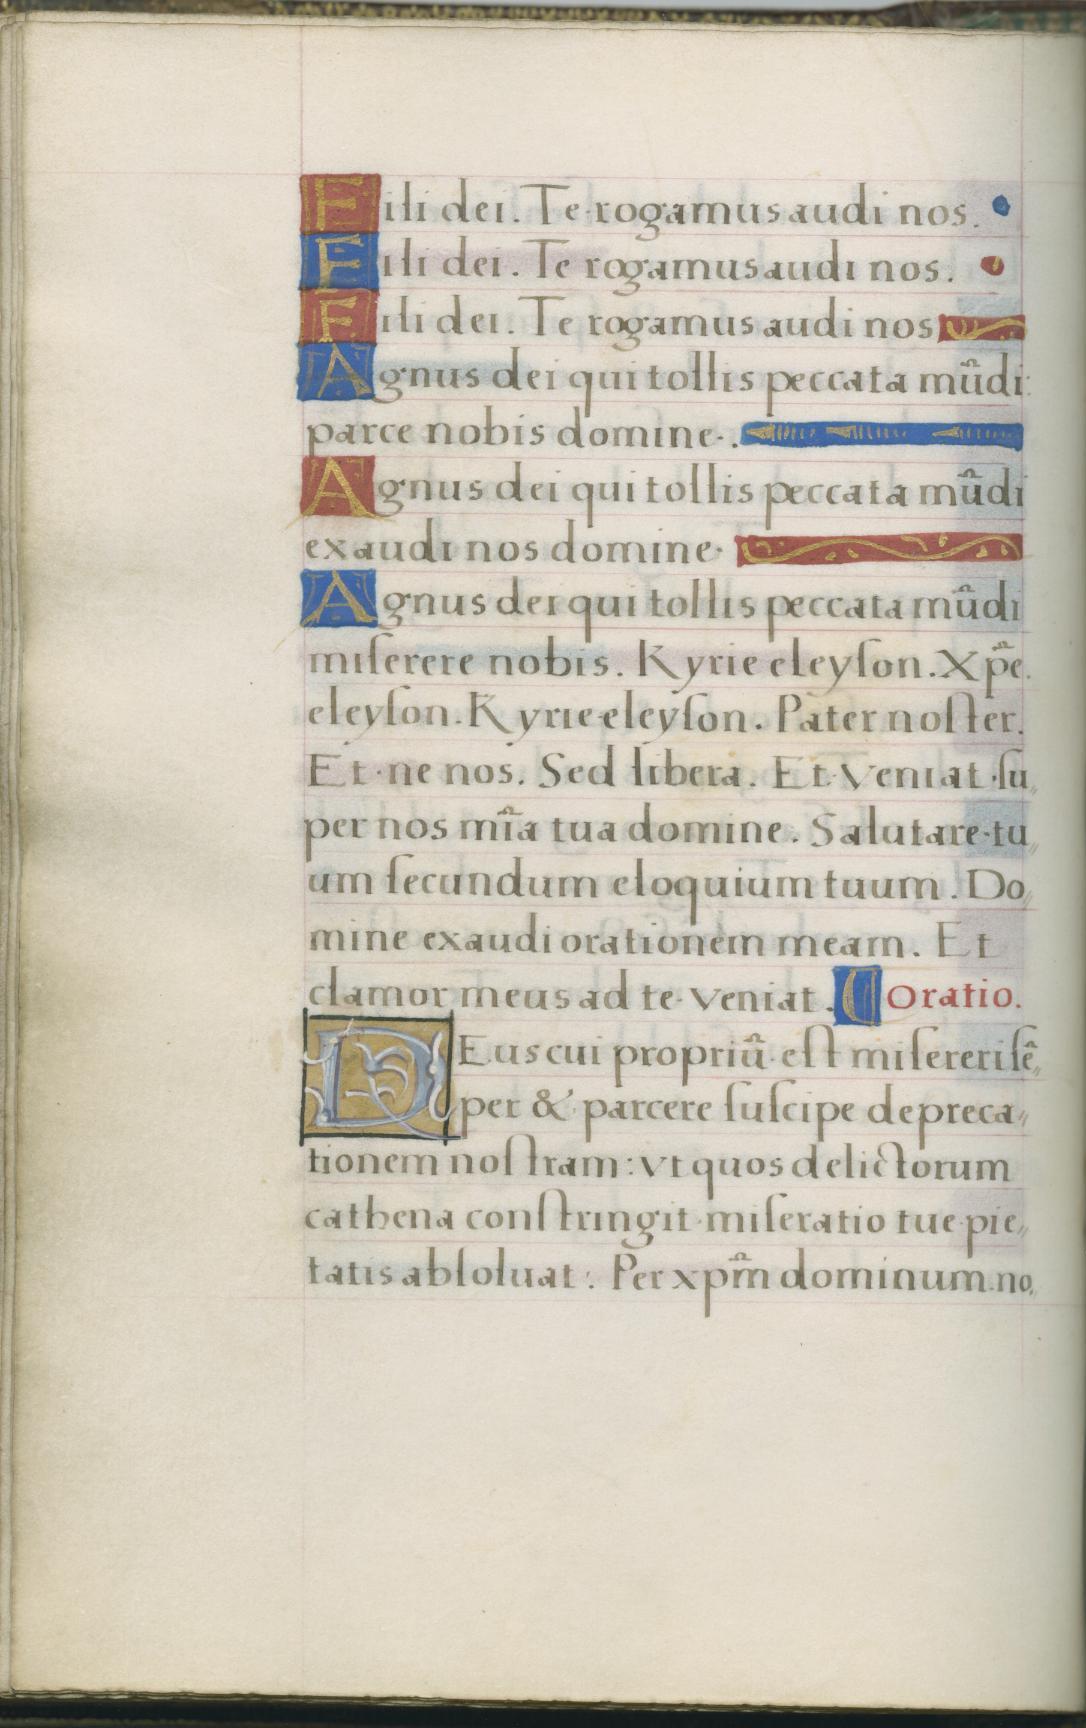 Fili dei. Te rogamus audi nos.
Fili dei. Te rogamus audi nos.
Fili dei. Te rogamus audi nos
Agnus dei qui tollis peccata mūdi:
parce nobis domine.
Agnus dei qui tollis peccata mūdi
exaudi nos domine.
Agnus dei qui tollis peccata mūdi
miſerere nobis. Kyrie eleyſon. Xp̄e.
eleyſon. Kyrie eleyſon. Pater noſter.
Et ne nos. Sed libera. Et veniat ſu„
per nos mīa tua domine. Salutare tu„
um ſecundum eloquium tuum. Do„
mine exaudi orationem meam. Et
clamor meus ad te veniat. Oratio.
DEus cui propriū eſt miſereri ſē„
per & parcere ſuſcipe depreca„
tionem noſtram: vt quos delictorum
cathena conſtringit miſeratio tue pie„
tatis abſoluat: Per xpm̄ dominum no„